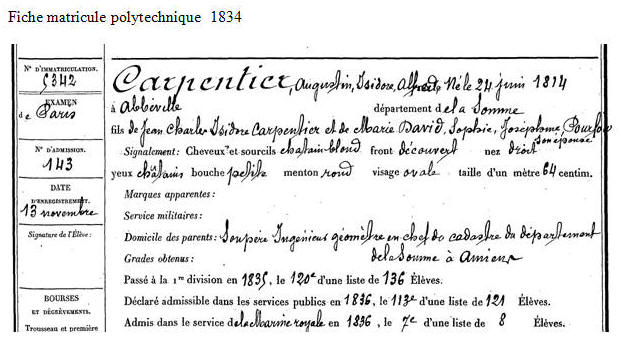 Fiche matricule polytechnique 1834
N° D'IMMATRICULATION.
5342
EXAMEN
de Paris
N° D'ADMISSION.
143
DATE
D'ENREGISTREMENT.
13 novembre
Signature de l'Élève:
BOURSES
ET DÉGRÈVEMENTS.
Trousseau et première
Carpentier, Augustin, Isidore, Alfred, Né le 24 juin 1814
à Abbéville département de la Somme
fils de Jean Charles Isidore Carpentier et de Marie David, Sophie, Joséphine,
son épouse
Signalement: Cheveux et sourcils chatain-blond front découvert nez droit
yeux châtains bouche petite menton rond visage ovale taille d'un mètre 64 centim.
Marques apparentes:
Service militaires:
Domicile des parents: Son père Ingénieur géomètre en chef du cadastre du département
de la Somme à Amiens
Grades obtenus:
Passé à la 1re division en 1835, le 120e d'une liste de 136 Élèves.
Déclaré admissible dans les services publics en 1836, le 113e d'une liste de 121 Élèves.
Admis dans le service de la Marine royale en 1836, le 7e d'une liste de 8 Élèves.